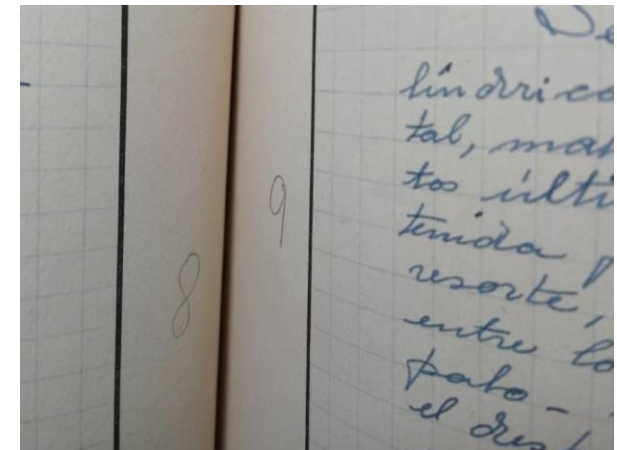 8
9
De
lindrico
tal, man
tos últi
tenida p
resorte,
entre lo
pato-
el des